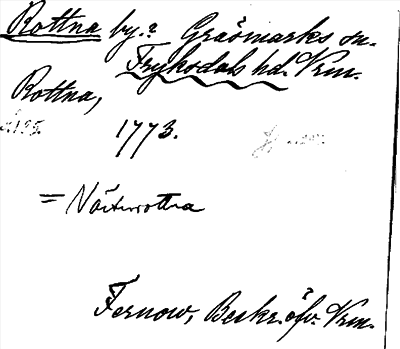 Rottna by.? Gräsmarks sn.
Frykdals hd. Vrm.
Rottna,
1773.
= Västrottna
Fernow, Beskr. öfv. Vrm.